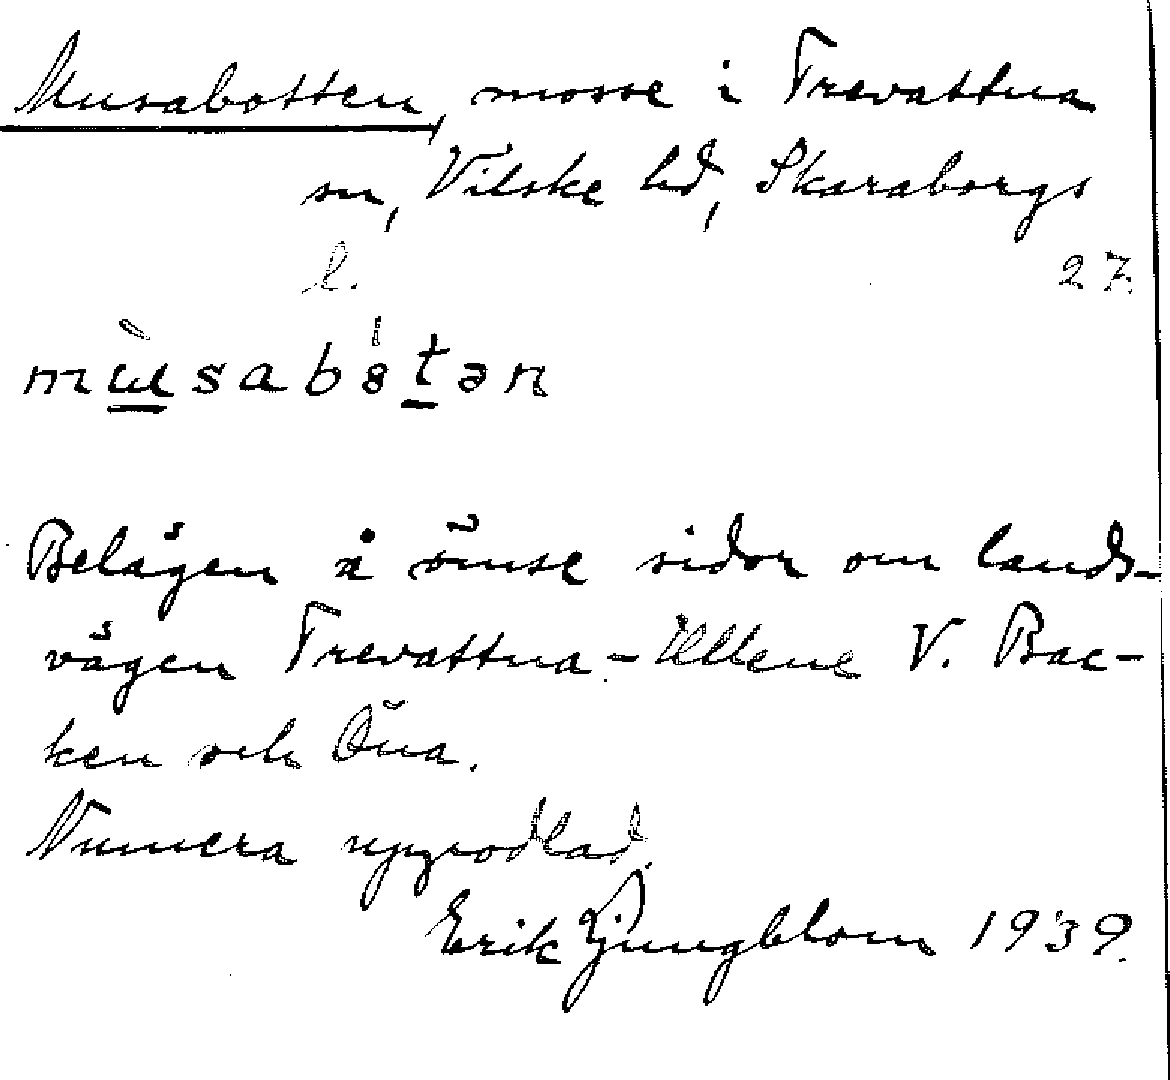 Musabotten, mosse i Trevattna
sn, Vilske hd, Skaraborgs
l. 27.
Belägen å ömse sidor om lands-
vägen Trevattna - Ullene V. Bac-
ken och Öna.
Numera uppodlad.
Erik Ljungblom 1939.